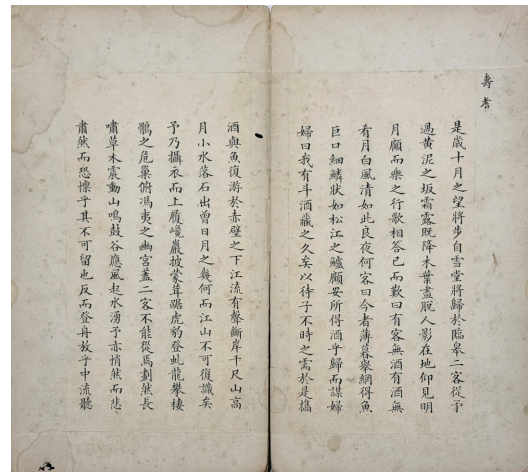 壽耆
是歲十月之望將步自雪堂將歸於臨皋二客從予
過黃泥之坂霜露既降木葉盡脫人影在地仰見明
月顧而樂之行歌相答已而歎曰有客無酒有酒無
肴月白風清如此良夜何客曰今者薄暮舉網得魚
巨口細鱗狀如松江之鱸顧安所得酒乎歸而謀婦
婦曰我有斗酒藏之久矣以待子不時之需於是攜
酒與魚復游於赤壁之下江流有聲斷岸千尺山高
月小水落石出曾日月之幾何而江山不可復識矣
予乃攝衣而上履巉巖披蒙茸踞虎豹登虬龍攀棲
鶻之危巢俯馮夷之幽宮蓋二客不能從焉劃然長
嘯草木震動山鳴鼓谷應風起水湧予亦悄然而悲
肅然而恐懍乎其不可留也反而登舟放乎中流聽